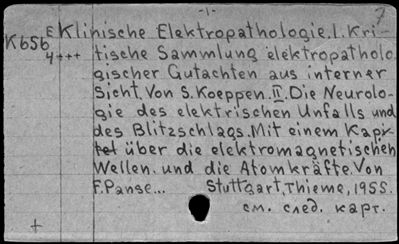 -1-
7
K656 E Klinische Elektropathologie. I. Kri-
4+++ tische Sammlung elektropatholo-
gischer Gutachten aus interner
Sicht. Von S. Koeppen. II. Die Neurolo-
gie des elektrischen Unfalls und
des Blitzschlags. Mit einem Kapi-
tel über die elektromagnetischen
Wellen und die Atomkräfte. Von
F. Panse... Stuttgart, Thieme, 1955.
см. след. карт.
+